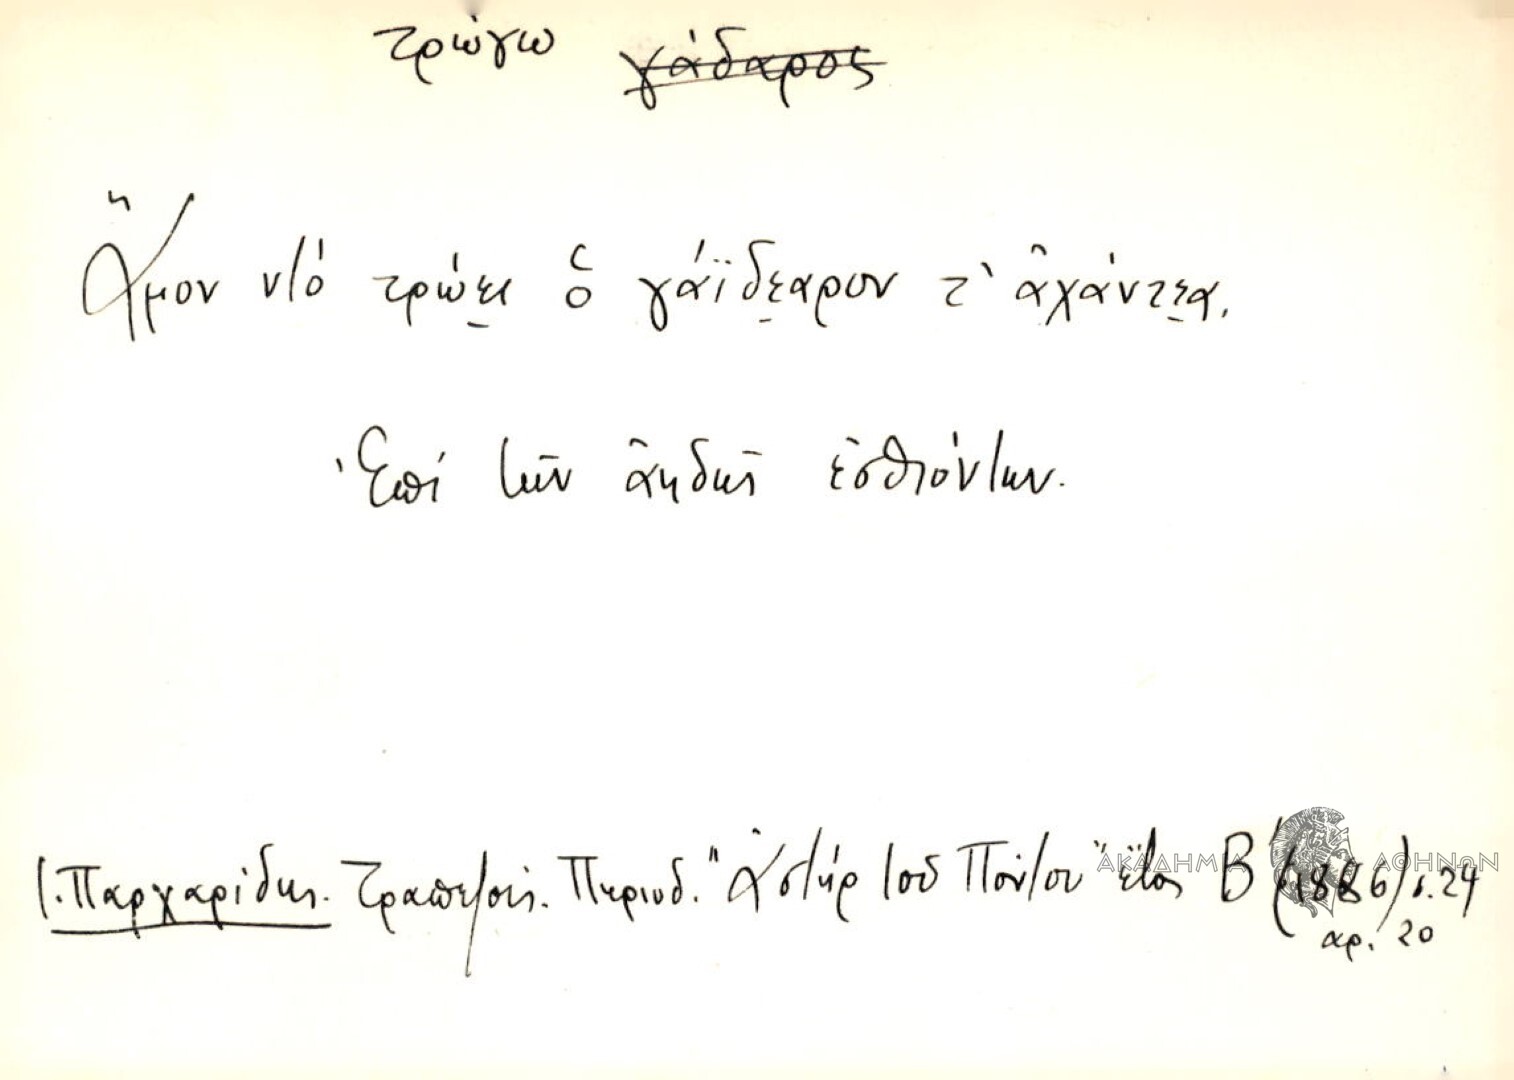 τρώγω γάδαρος
Ἄμον ντό τρώει ὁ γάϊδεαρον τ' ἀχάντεα.
Ἐπί τῶν ἀηδῶς ἐσθιόντων.
Ι. Παρχαρίδης. Τραπεζοῦς. Περιοδ. "Ἀστήρ τοῦ Πόντου" ἔτος Β (1886) σ. 24
αρ. 20
ΑΚΑΔΗΜΙΑ ΑΘΗΝΩΝ